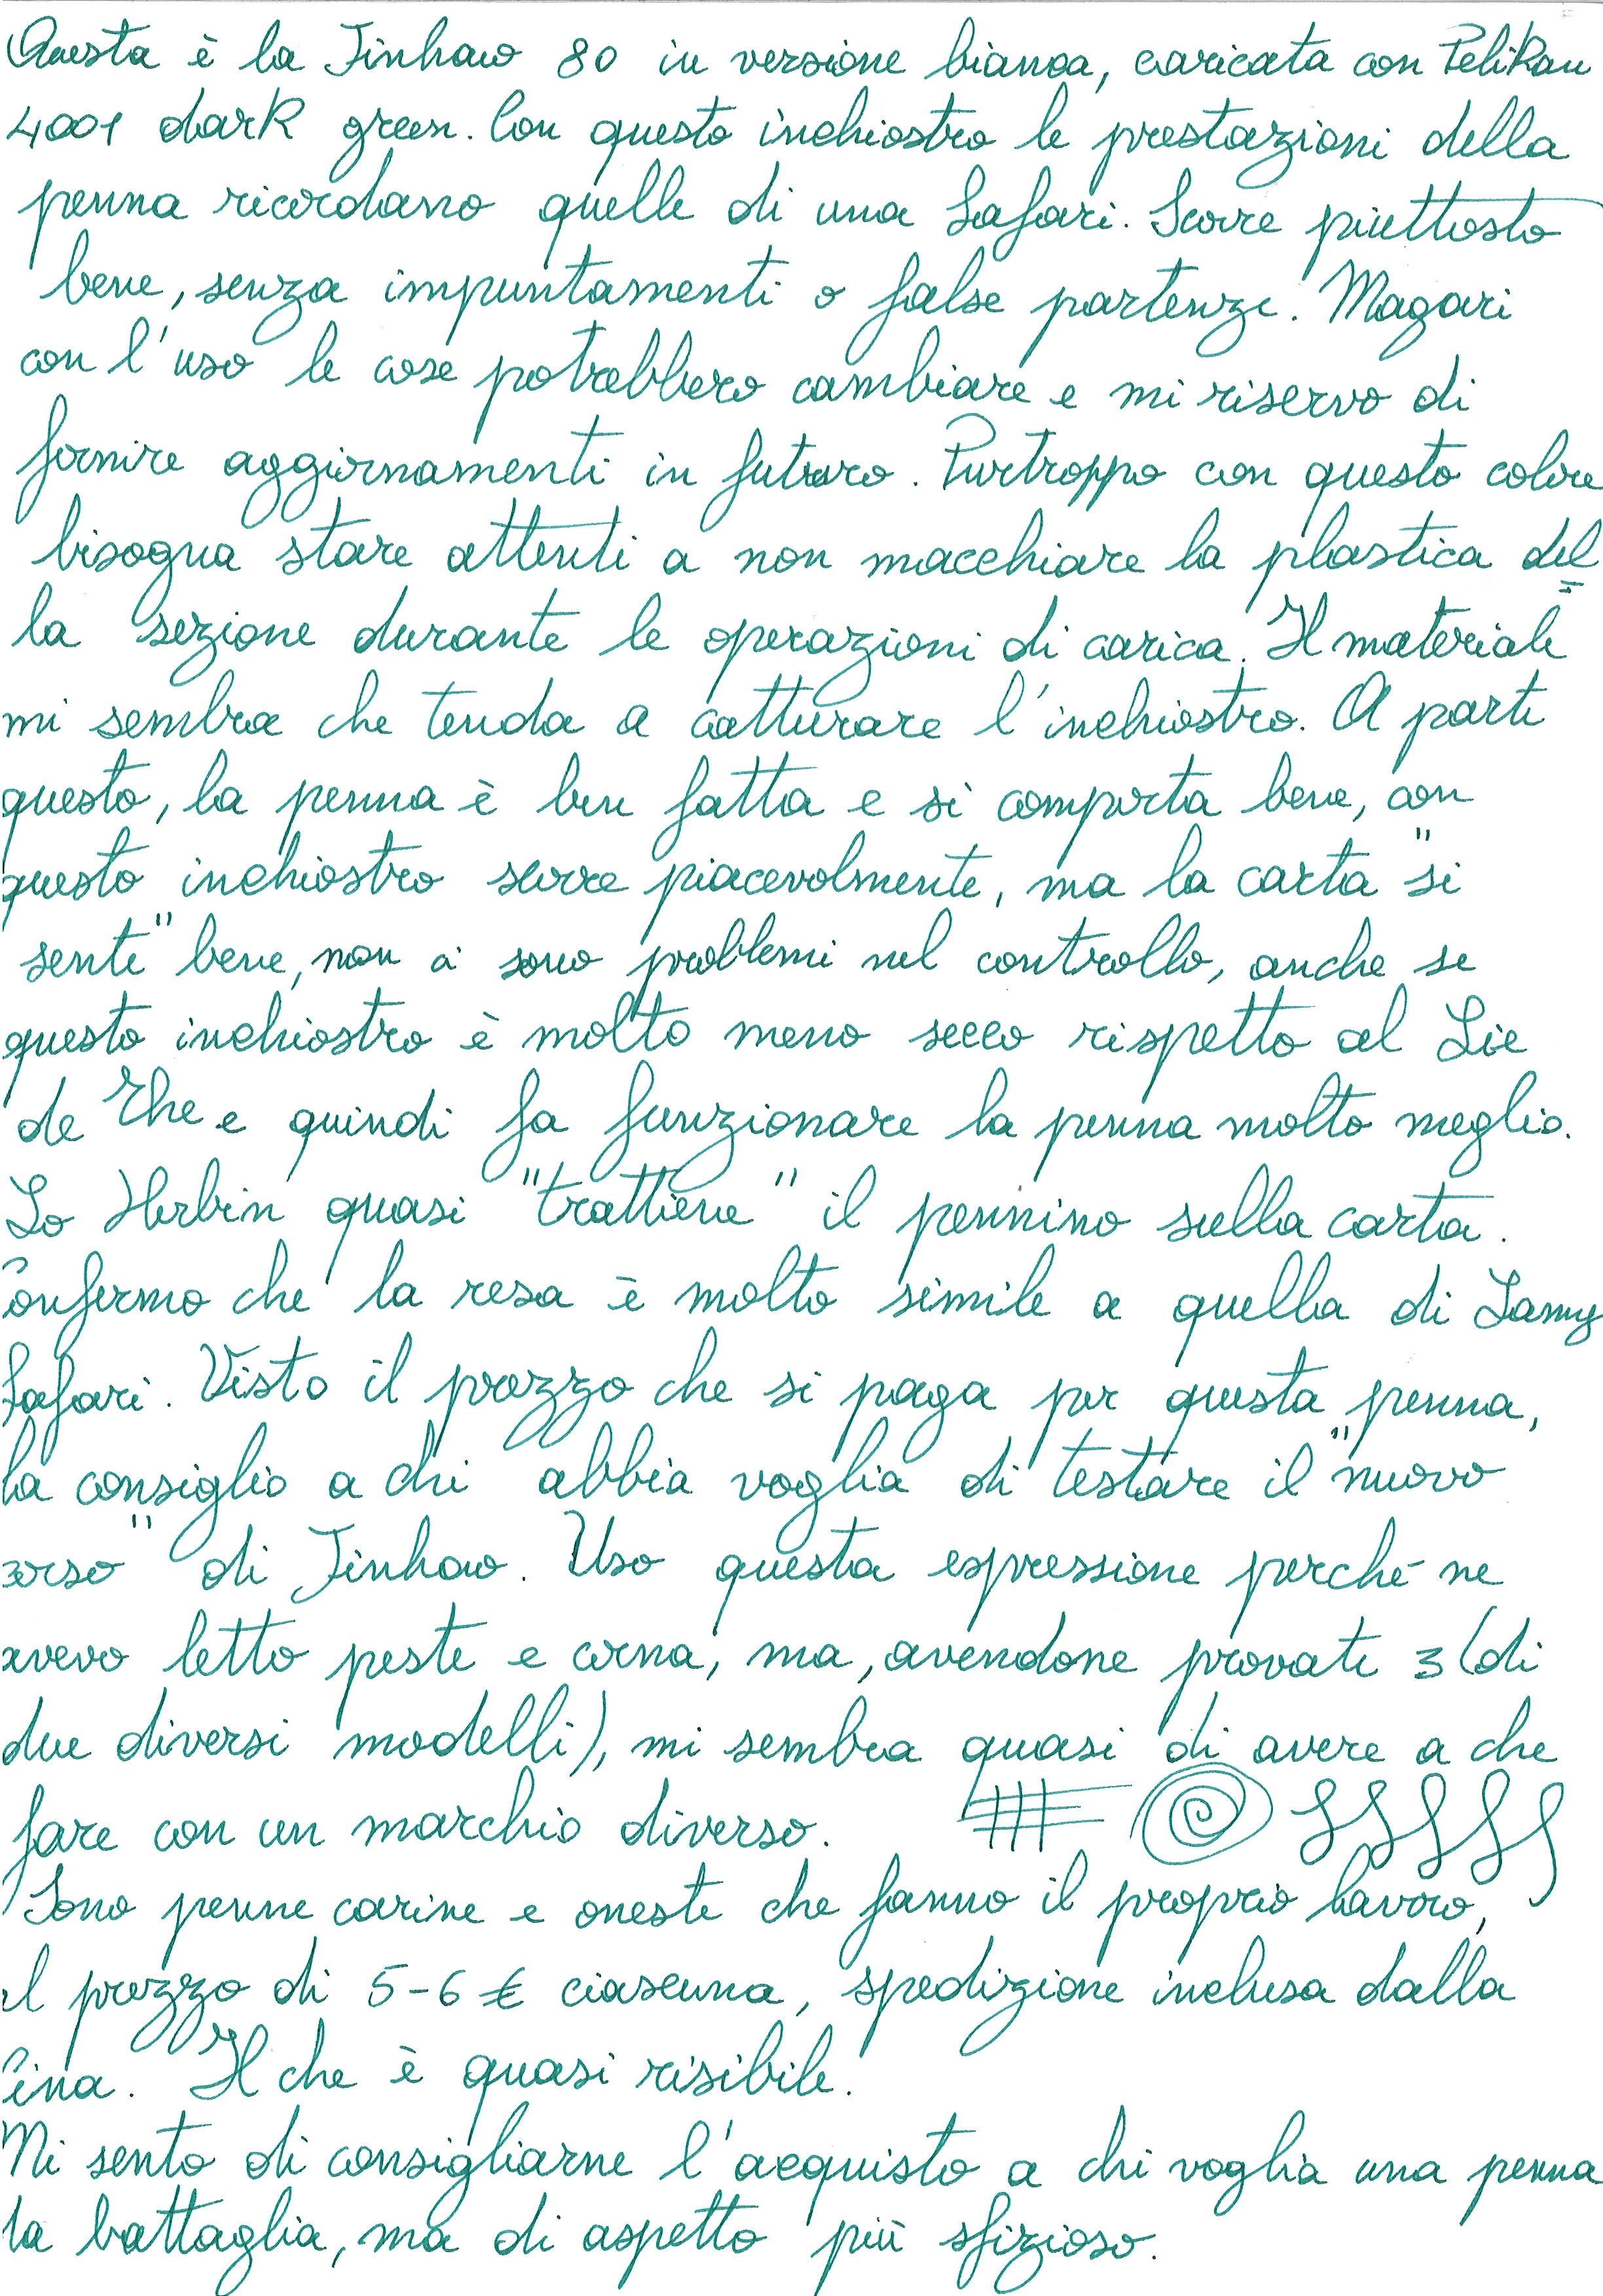 Questa è la Jinhao 80 in versione bianca, caricata con Pelikan
4001 dark green. Con questo inchiostro le prestazioni della
penna ricordano quelle di una Safari. Scorre piuttosto
bene, senza impuntamenti o false partenze. Magari
con l'uso le cose potrebbero cambiare e mi riservo di
fornire aggiornamenti in futuro. Purtroppo con questo colore
bisogna stare attenti a non macchiare la plastica del=
la sezione durante le operazioni di carica. Il materiale
mi sembra che tenda a catturare l'inchiostro. A parte
questo, la penna è ben fatta e si comporta bene, con
questo inchiostro scorre piacevolmente, ma la carta "si
sente" bene, non ci sono problemi nel controllo, anche se
questo inchiostro è molto meno secco rispetto al Lie
de The e quindi fa funzionare la penna molto meglio.
Lo Herbin quasi "trattiene" il pennino sulla carta.
Confermo che la resa è molto simile a quella di Lamy
Safari. Visto il prezzo che si paga per questa penna,
la consiglio a chi abbia voglia di testare il "nuovo
corso" di Jinhao. Uso questa espressione perché ne
avevo letto peste e corna, ma, avendone provate 3 (di
due diversi modelli), mi sembra quasi di avere a che
fare con un marchio diverso.
Sono penne carine e oneste che fanno il proprio lavoro,
al prezzo di 5-6 € ciascuna, spedizione inclusa dalla
Cina. Il che è quasi risibile.
Mi sento di consigliarne l'acquisto a chi voglia una penna
da battaglia, ma di aspetto più sfizioso.